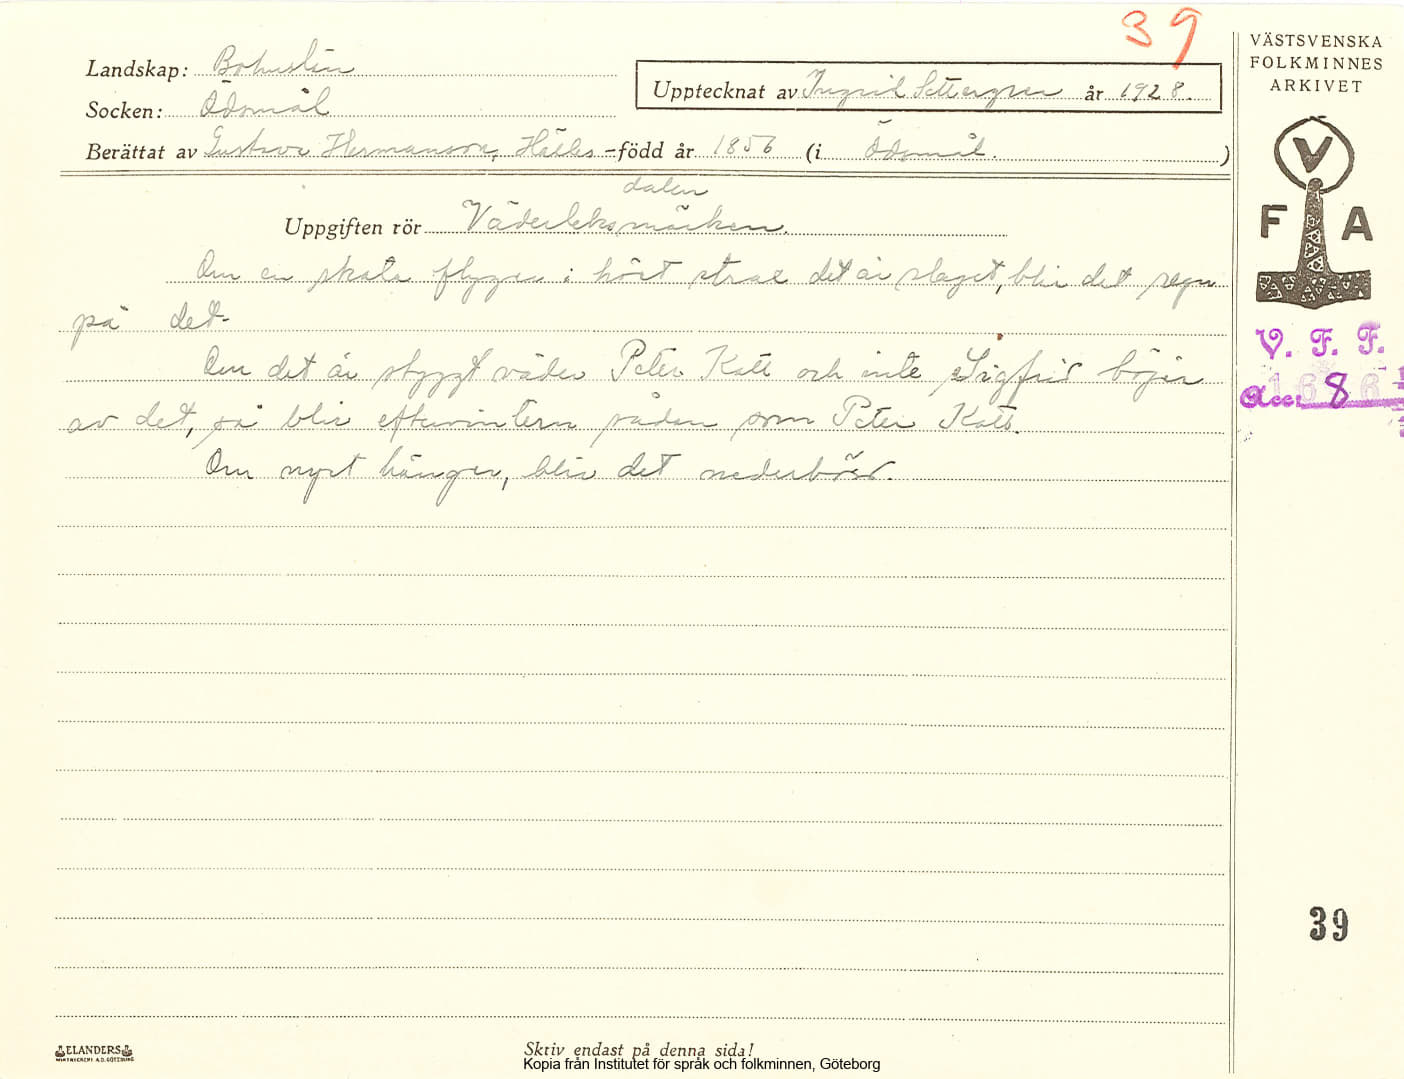 39
Landskap: Bohuslän
Socken: Ödsmål
Upptecknat av Ingrid Settergren år 1928.
Berättat av Gustava Hermansson, Hälle-
dalen
född år 1856 (i Ödsmål. )
Uppgiften rör Väderleksmärken.
Om en skata flyger i höet strax det är slaget, blir det regn
på det.
Om det är styggt väder Peter Katt och inte Sigfrid böjer
av det, så blir eftervintern sådan som Peter Katt.
Om nyet hänger, blir det nederbörd.
VÄSTSVENSKA
FOLKMINNES
ARKIVET
V
F A
V. F. F.
Acc:
39
ELANDERS
Skriv endast på denna sida!
Kopia från Institutet för språk och folkminnen, Göteborg